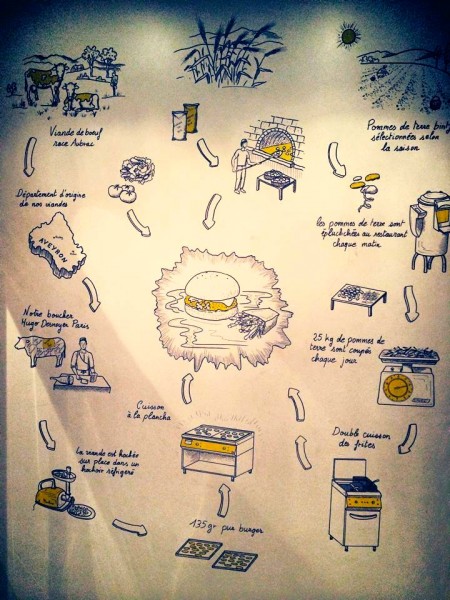 Viande de boeuf
race Aubrac
Pommes de terre
sélectionnées selon
la saison
Département d'origine
de nos viandes
AVEYRON
les pommes de terre sont
épluchées au restaurant
chaque matin
Notre boucher
Hugo Desnoyer Paris
25 kg de pommes de
terre sont coupés
chaque jour
Cuisson
à la plancha
Double cuisson
des frites
La viande est hachée
sur place dans un
hachoir réfrigéré
135gr pur burger